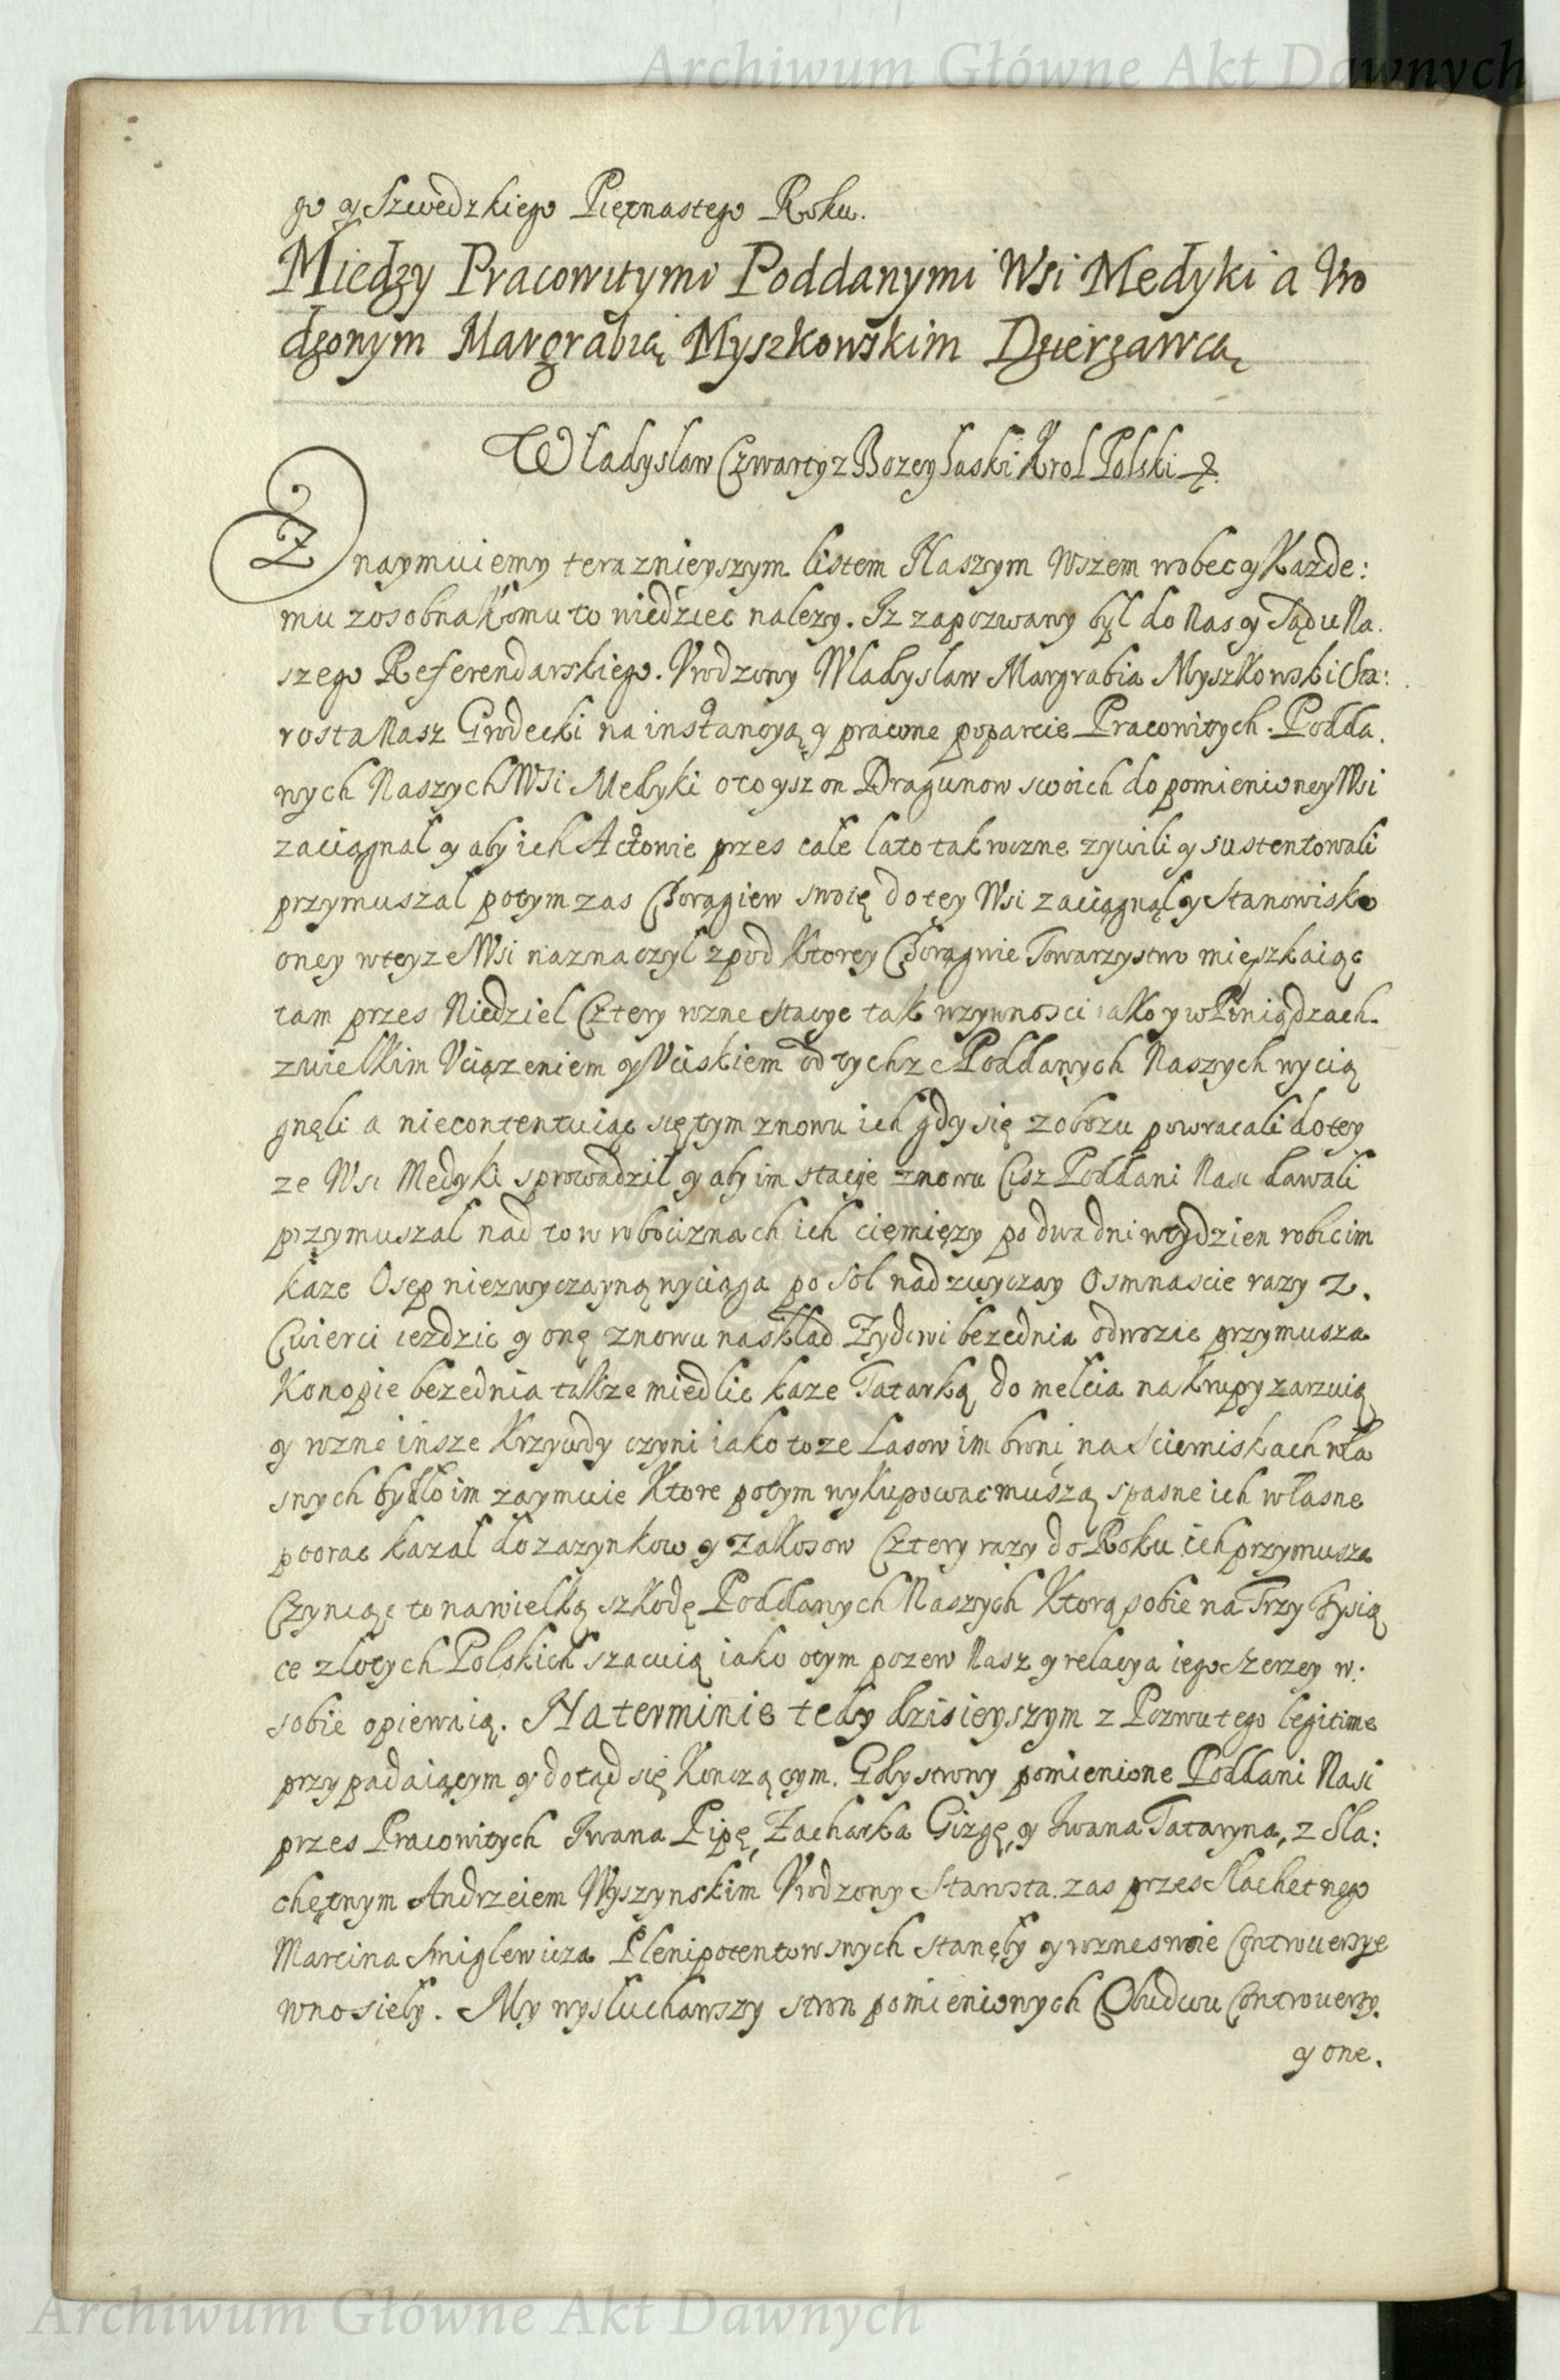 Archiwum Główne Akt Dawnych
go y Szwedzkiego Piętnastego Roku.
Miedzy Pracowitymi Poddanymi Wsi Medyki a Vro
dzonym Margrabią Myszkowskim Dzierzawcą
Wladyslaw Czwarty z Bozey Łaski Krol Polski &.
Znaymuiemy teraznieyszym listem Naszym wszem wobec y Kazde:
mu zosobna komu to wiedziec nalezy. Iz zapozwany był do Nas y Sądu Na.
szego Referendarskiego. Vrodzony Wladyslaw Margrabia Myszkowski Sta:
rosta Nasz Grodecki na instancyą y prawne poparcie Pracowitych Podda.
nych Naszych Wsi Medyki oto ysz on Dragunow swoich do pomienioney Wsi
zaciągnal y aby ich Actorowie przes cale lato tak roczne zywili y sustentowali
przymuszal potym zas Chorągiew swoię do tey Wsi zaciągnął y Stanowisko
oney wteyze Wsi naznaczyl zpod Ktorey Chorągwie Towarzystwo mięszkaiąc
tam przes Niedziel Cztery rozne stacye tak wzywnosci iako y w Pieniądzach.
zwielkim Vciązeniem y Vciskiem od tychze Poddanych Naszych wycią
gnęli a niecontentuiąc się tym znowu ich gdy się z obozu powracali do tey
ze Wsi Medyki sprowadził y aby im stacye znowu Cisz Poddani Nasi dawali
przymuszal nad to w robociznach ich ciemięzy po dwa dni w tydzien robic im
kaze Osep niezwyczayną wyciąga po sol nad zwyczay Osmnascie razy z.
Cwierci iezdzic y onę znowu na skład Zydowi bezednia odwozic przymusza
Konopie bezednia takze miedlic kaze Tatarką do melcia na Krupy zarzuią
y rozne insze Krzywdy czyni iako to ze Lasow im broni na Scierniskach wła
snych bydło im zaymuie Ktore potym wykupowac muszą spasne ich własne
poorac kazal do zazynkow y zakosow Cztery razy do Roku ich przymusza
Czyniąc to na wielką szkodę Poddanych Naszych Ktorą sobie na Trzy tysią
ce zlotych Polskich szacuią iako o tym pozew Nasz y relacya iego szerzey w.
sobie opiewaią. Na terminie tedy dzisieyszym z Pozwu tego legitime
przypadaiącym y dotąd się Konczącym. Gdy strony pomienione Poddani Nasi
przes Pracowitych Iwana Pipę, Zacharka Gizgę, y Iwana Tataryna, z Sla:
chętnym Andrzeiem Wyszynskim Vrodzony Starosta zas przes Slachetnego
Marcina Smiglewicza Plenipotentow swych stanęły y rozne swoie Controuersye
wnosiely. My wysluchawszy stron pomienionych Obudwu Controuersy.
y one.
Archiwum Główne Akt Dawnych